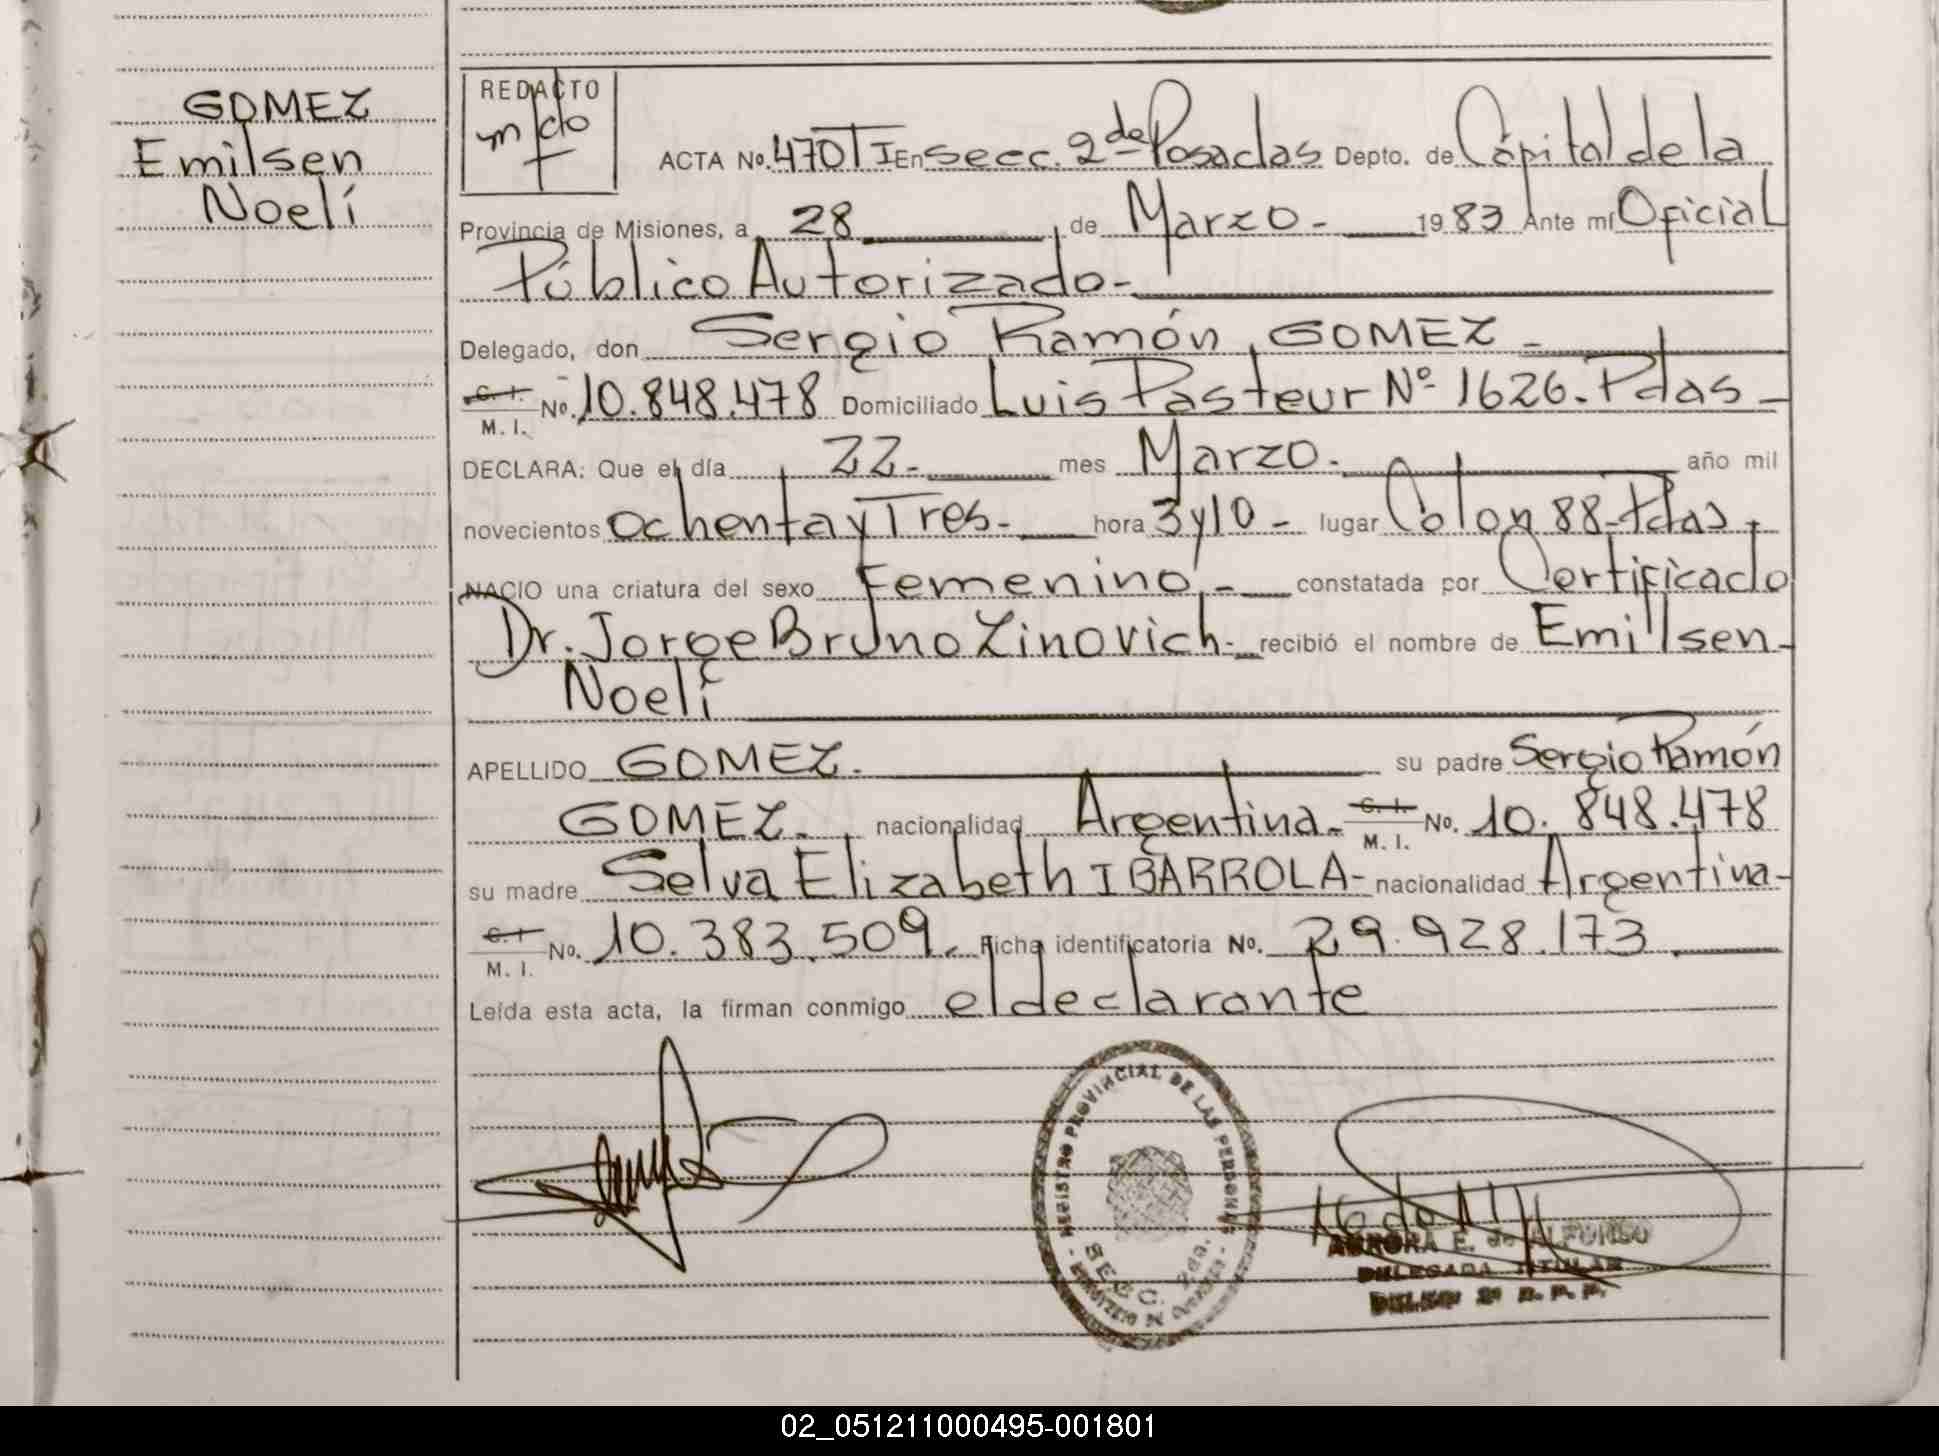 GOMEZ
Emilsen
Noelí
REDACTO
ACTA No. 470 T I En secc. 2da Posadas Depto. de Capital de la
Provincia de Misiones, a 28 de Marzo - 1983 Ante mí Oficial
Público Autorizado -
Delegado, don Sergio Ramón GOMEZ -
C. I.
M. I. No. 10.848.478 Domiciliado Luis Pasteur Nº 1626. Pdas -
DECLARA: Que el día 22 - mes Marzo. año mil
novecientos ochenta y Tres - hora 3 y 10 - lugar Colon 88 - Pdas -
NACIO una criatura del sexo Femenino - constatada por Certificado
Dr. Jorge Bruno Zinovich - recibió el nombre de Emilsen -
Noelí
APELLIDO GOMEZ. su padre Sergio Ramón
GOMEZ. nacionalidad Argentina - C. I. M. I. No. 10.848.478
su madre Selva Elizabeth IBARROLA - nacionalidad Argentina -
C. I.
M. I. No. 10.383.509. Ficha identificatoria No. 29.928.173
Leída esta acta, la firman conmigo el declarante
REGISTRO PROVINCIAL DE LAS PERSONAS
SECC. 2da.
AURORA E. de ALFONSO
DELEGADA TITULAR
02_051211000495-001801